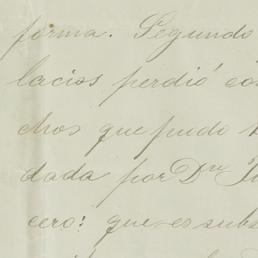 forma. Segundo
lacios perdió
chos que pudo
dada por Dn
cero: que es subs